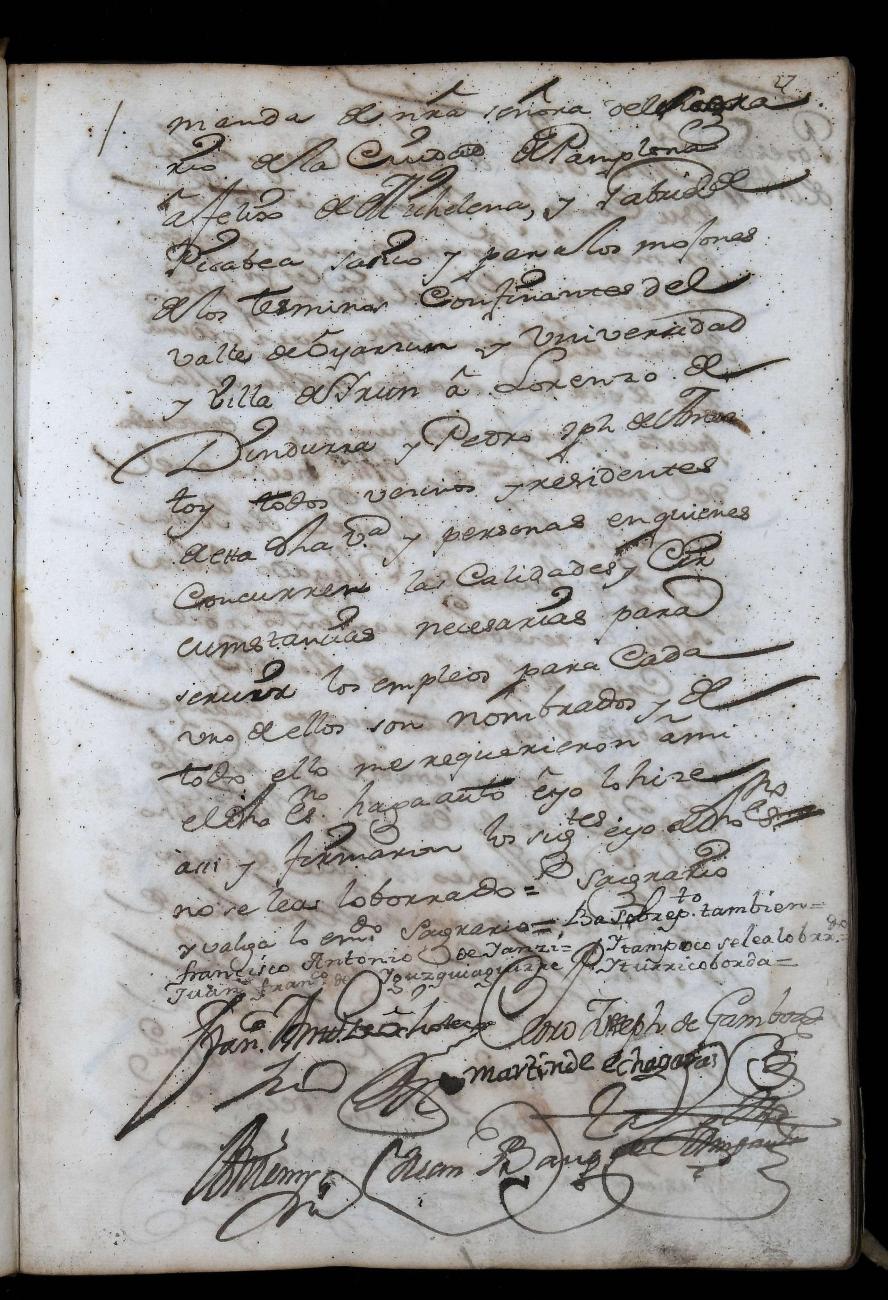 27
manda de nra señora del Sagra
rio de la Ciudad de Pamplona
â Felix de Michelena, y Gabriel de
Picabea sario y para los mosones
de los terminos Confinantes del
valle de Oyarzun y Universidad
y Villa de Yrun â Lorenzo de
Dindurra y Pedro Jph de
toy todos vecinos y residentes
de esta dha vª y personas en quienes
Concurren las Calidades y Cir
cunstancias necesarias para
servir los empleos para Cada
uno de ellos son nombrados y de
todo ello me requirieron â mi
el dho esno haga auto ê yo lo hize
asi y firmaron los sigtes e yo el dho esno
no se lea lo borrado = Sagrario
y valga lo emdo Sagrario = Ba sobrepto tambien =
francisco Antonio de Yanzi = Y tampoco se lea lo brrdo =
Juan franco de Yguzquiaguirre Yturricoborda =
Fran.co Anto
Pedro Joseph de Gamboa
martin de echagaray
Ante mi
Juan Bauptª de